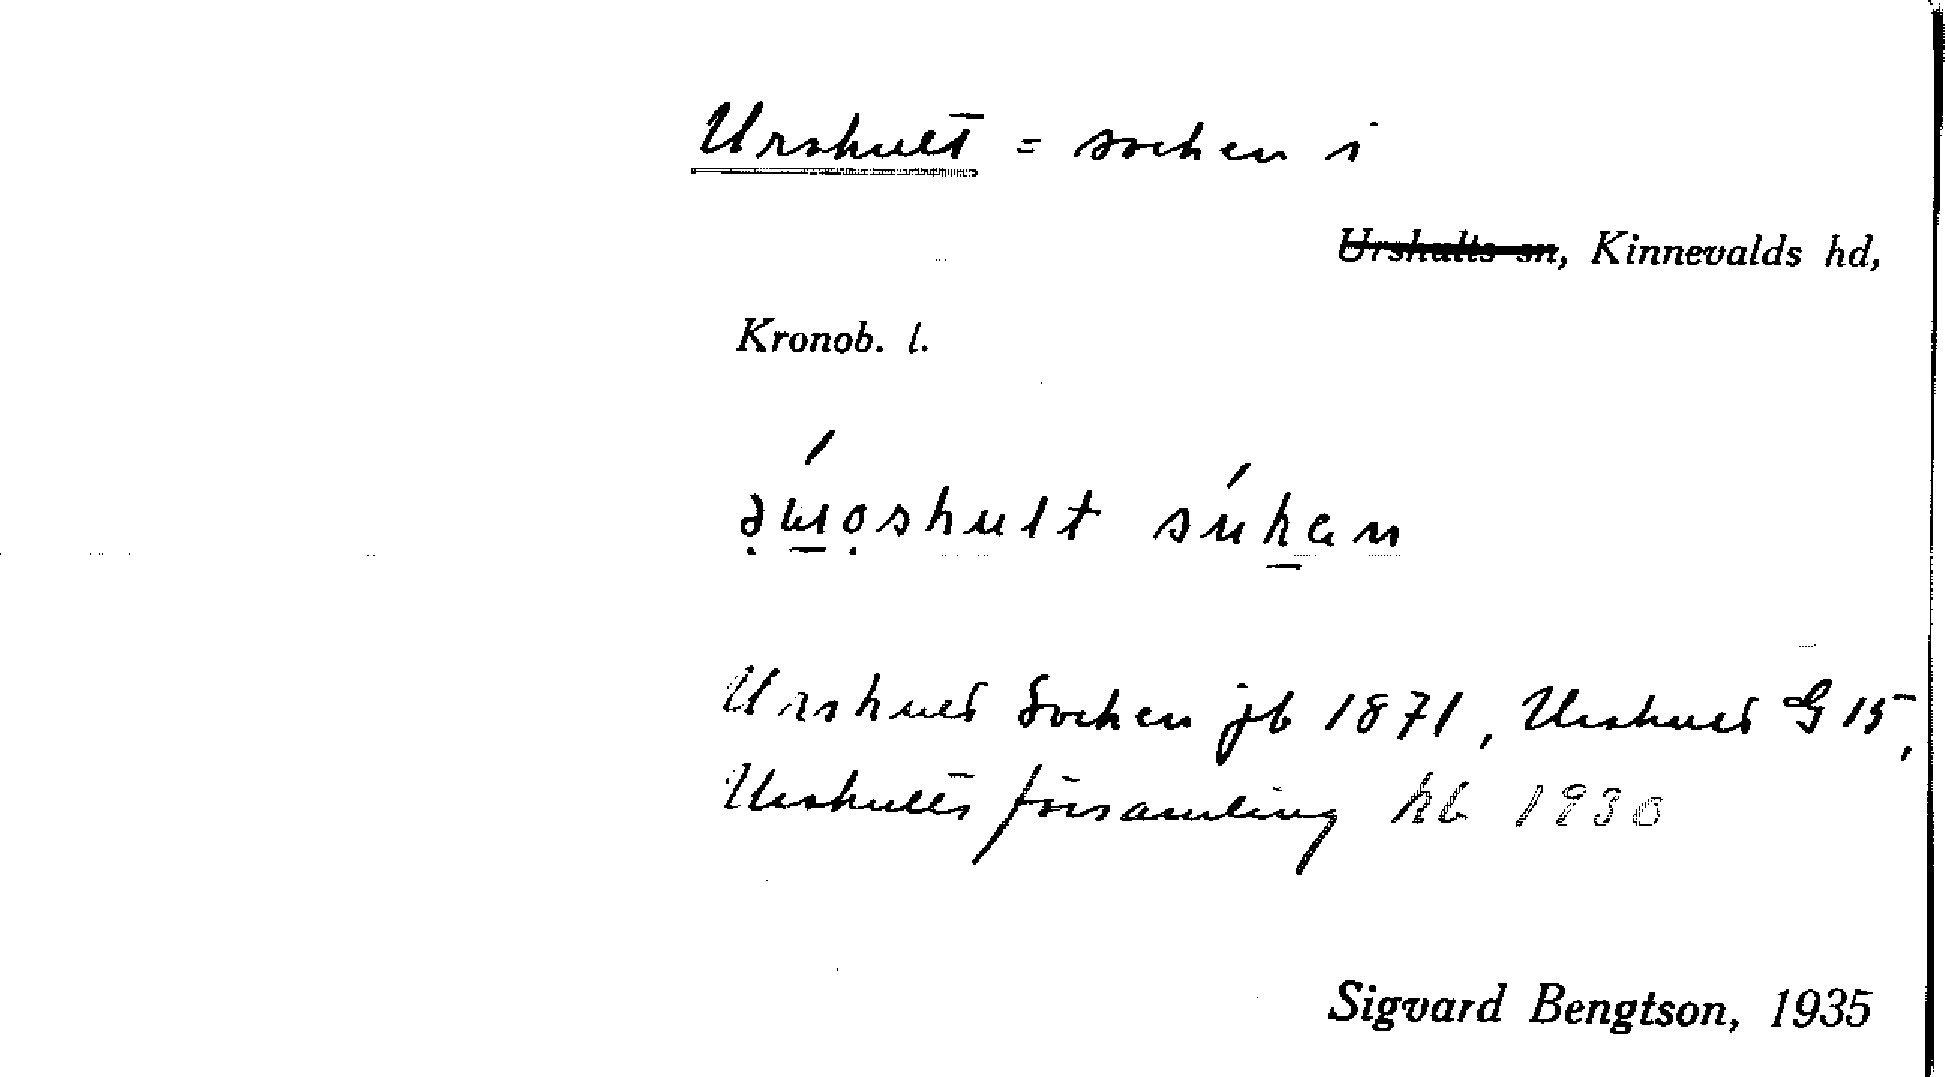 Urshult = socken i
Urshults sn, Kinnevalds hd,
Kronob. l.
Urshult Socken jb 1871, Urshult G 15,
Urshults församling kb 1930
Sigvard Bengtson, 1935